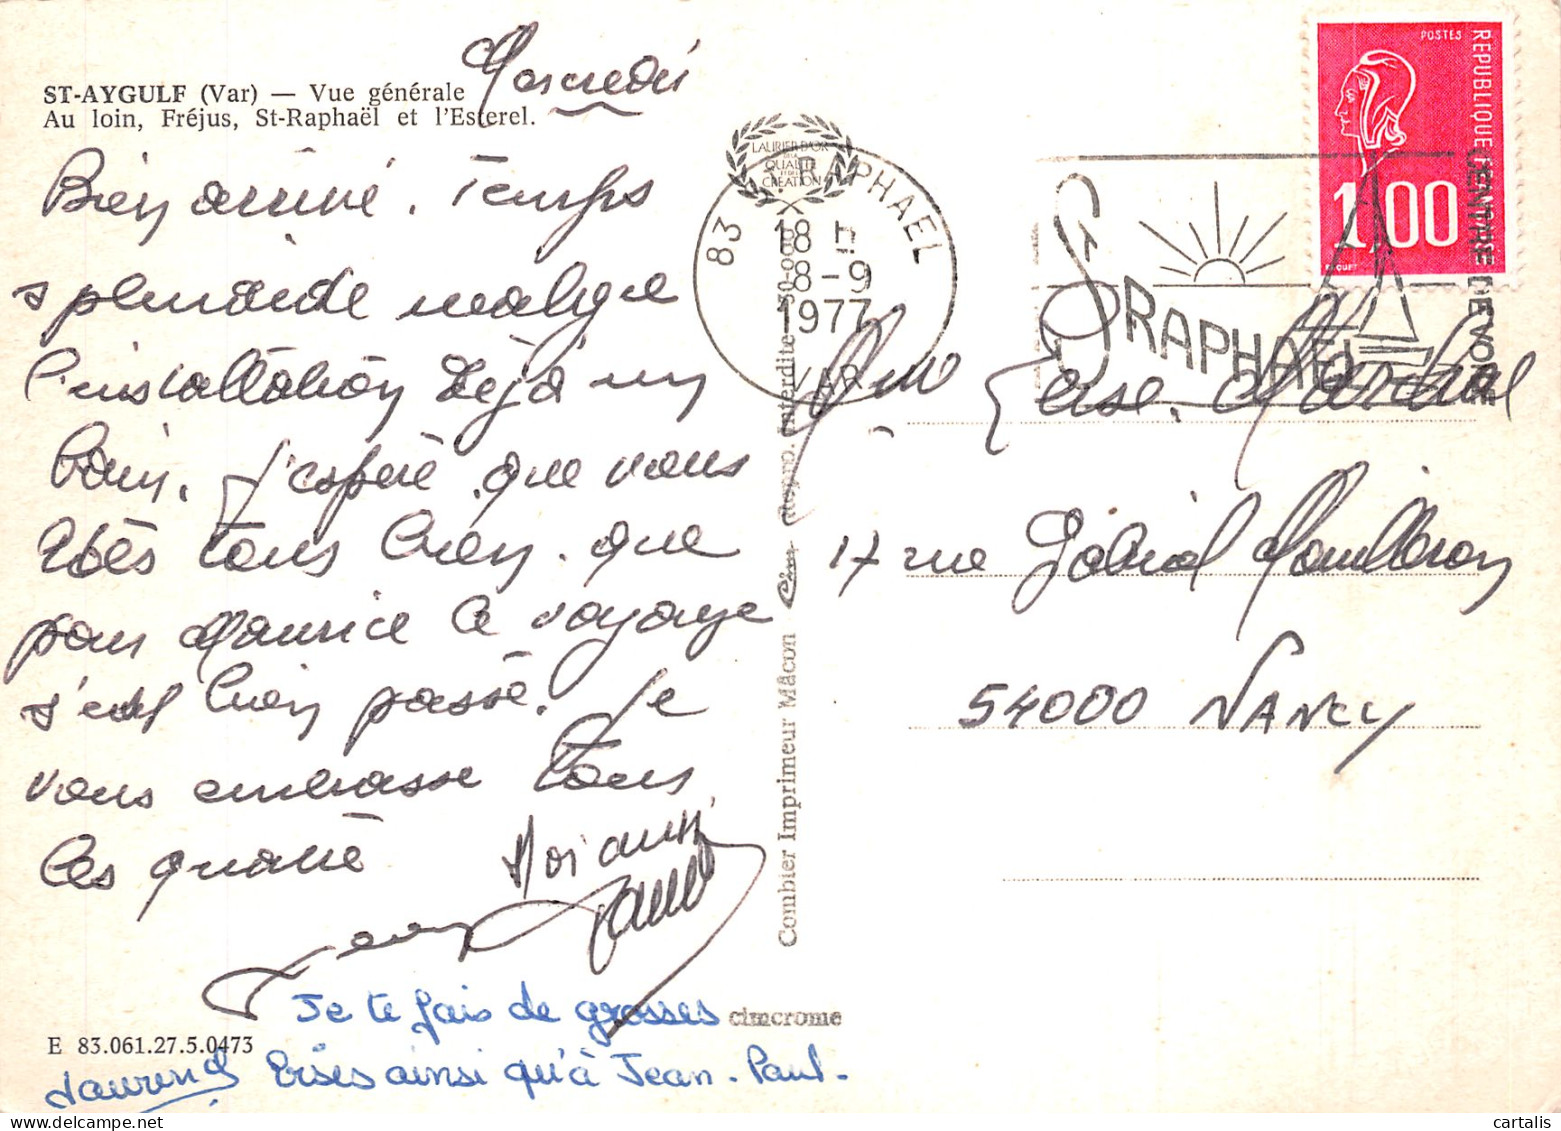 Mercredi
ST-AYGULF (Var) — Vue générale
Au loin, Fréjus, St-Raphaël et l'Esterel.
Bien arrivé. Temps
splendide malgré
l'installation déjà un
bain. J'espère que vous
êtes tous bien. que
pour Maurice le voyage
s'est bien passé. Je
vous embrasse tous
les quatre
Moi aussi
Je te fais de grosses
bises ainsi qu'à Jean-Paul.
Laurence
E 83.061.27.5.0473
cimcrome
Combier Imprimeur Mâcon
LAURIER D'OR
DE LA
QUALITÉ
ET DE LA
CREATION
83 ST RAPHAEL
18 H
8-9
1977
VAR
ST RAPHAEL
POSTES
REPUBLIQUE FRANCAISE
1,00
Mme
17 rue Gabriel Mouilleron
54000 NANCY
cartalis